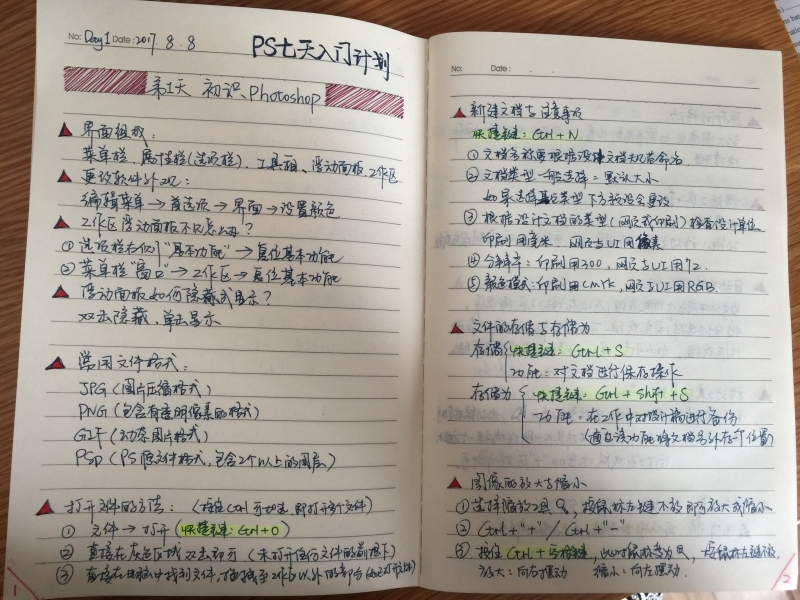 No: Day1 Date: 2017. 8. 8
PS七天入门计划
第1天 初识Photoshop
界面组成:
菜单栏、属性栏(选项栏)、工具箱、浮动面板、工作区
更改软件外观:
编辑菜单→首选项→界面→设置颜色
工作区浮动面板不见怎么办?
①选项栏右侧"基本功能"→复位基本功能
②菜单栏"窗口"→工作区→复位基本功能
浮动面板如何隐藏或显示?
双击隐藏、单击显示
常用文件格式:
JPG(图片压缩格式)
PNG(包含有透明像素的格式)
GIF(动态图片格式)
PSD(PS源文件格式,包含2个以上的图层)
打开文件的方法:(按住Ctrl可加选,即打开多个文件)
①文件→打开(快捷键:Ctrl+O)
②直接在灰色区域双击即可(未打开任何文件的前提下)
③直接在电脑中找到文件,拖拽至工作区以外的部分(如已打开文件)
1
No: Date:
新建文档与注意事项
快捷键:Ctrl+N
①文档名称要根据设计文档规范命名
②文档类型一般选择:默认大小
如果选择其它类型下方就会更改
③根据设计文档的类型(网页或印刷)检查设计单位
印刷用毫米 网页与UI用像素
④分辨率:印刷用300,网页与UI用72.
⑤颜色模式:印刷用CMYK,网页与UI用RGB.
文件的存储与存储为
存储 快捷键:Ctrl+S
功能:对文档进行保存操作
存储为 快捷键:Ctrl+Shift+S
功能:在工作中对设计稿进行备份
(通过该功能将文档另外存一个位置)
图像的放大与缩小
①选择缩放工具,按鼠标左键不放即可放大或缩小
②Ctrl+"+" / Ctrl+"-"
③按住Ctrl+空格键,此时鼠标变为,按鼠标左键拖
放大:向右摆动 缩小:向左摆动.
2